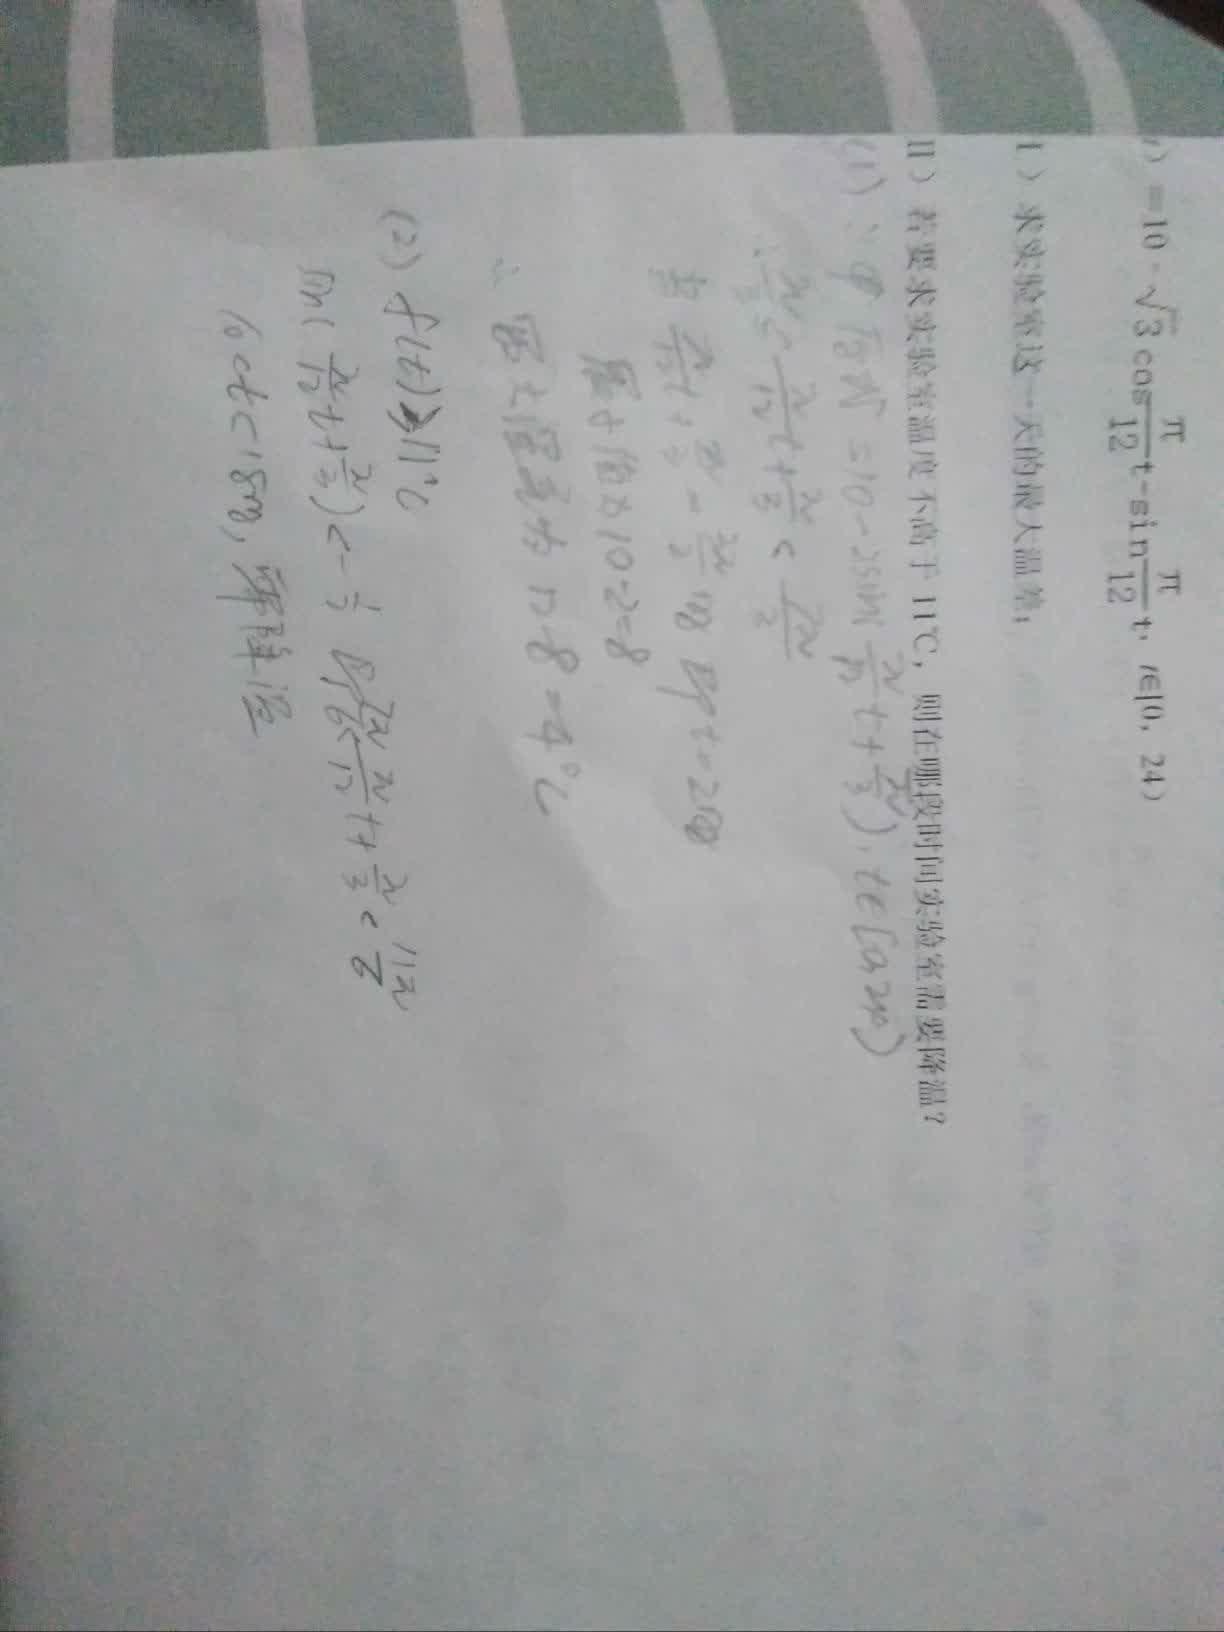 ) =10-√3cosπ/12t-sinπ/12t, t∈[0, 24)
I) 求实验室这一天的最大温差;
II) 若要求实验室温度不高于 11℃, 则在哪段时间实验室需要降温?
(1) ∵ φ 原式=10-2sin(π/12t+π/3), t∈[0,24)
∴ π/3≤π/12t+π/3<7π/3
当 π/12t+π/3=3π/2时 即t=
最小值为10-2=8
∴ 最大温差为12-8=4℃
(2) f(t)≥11℃
sin(π/12t+π/3)<-1/2 即7π/6<π/12t+π/3<11π/6
10<t<18时, 降温